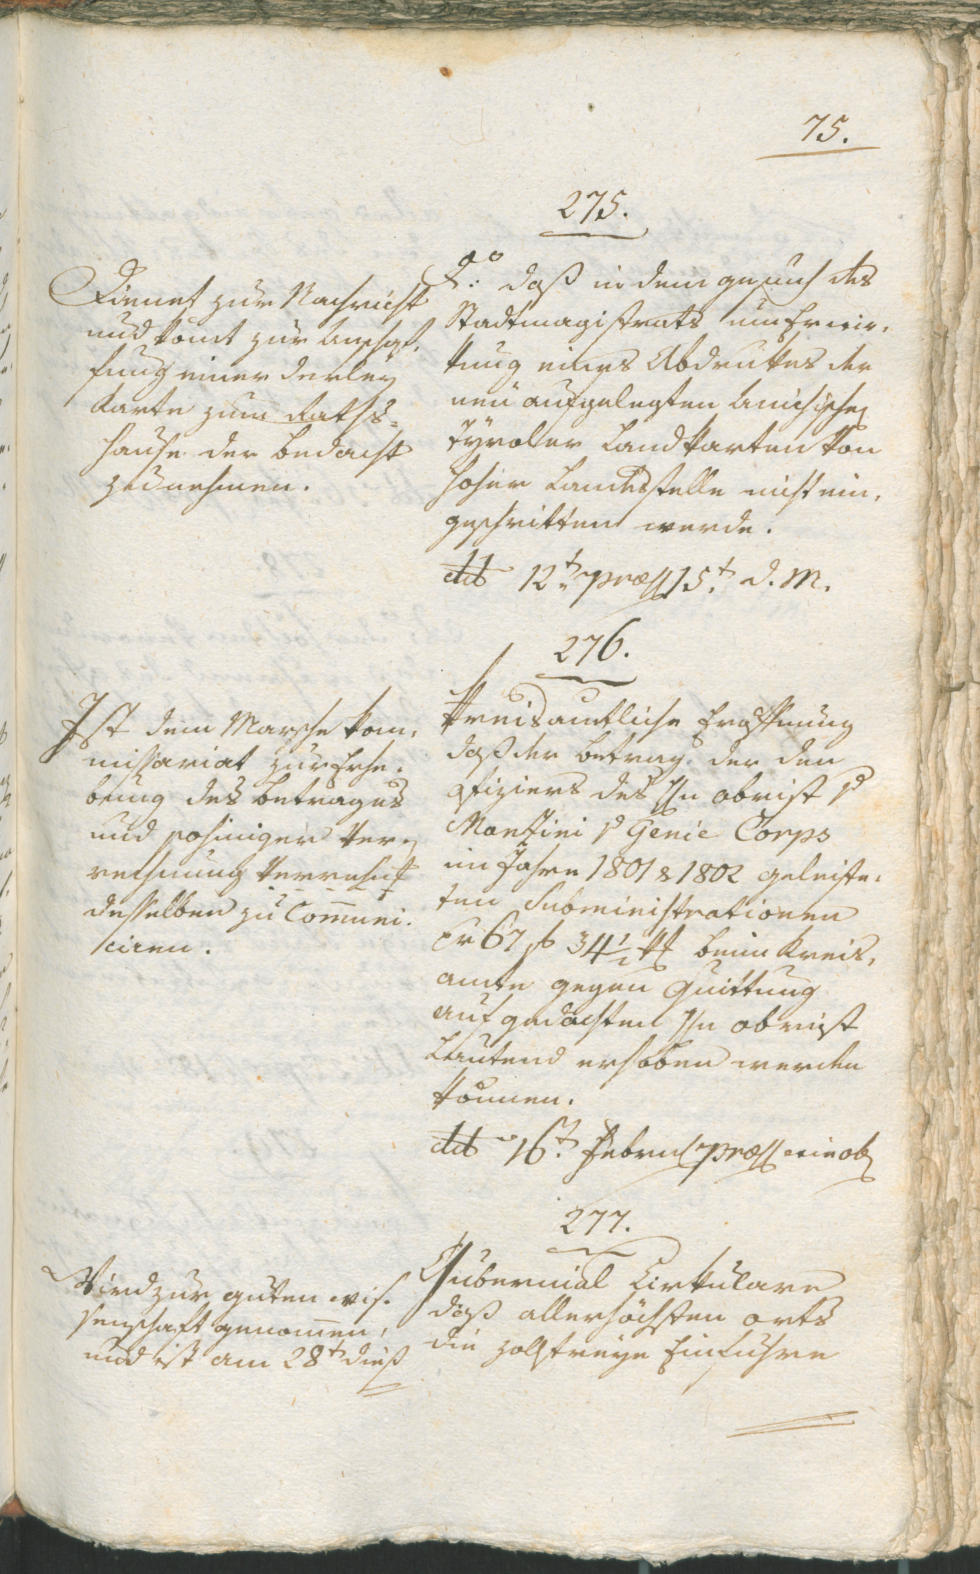 75.
275.
Dienet zur Nachricht
und kömt zur Anschaf,
fung einer derley
Karte zum Raths=
Hause der Bedacht
zu nehmen.
dto: daß in dem gesuch des
Stadtmagistrats um Erwir,
kung eines Abdrukes der
neü aufgelegten Anichische
Tyroler Landkarten von
hoher Landesstelle nicht ein,
geschritten werde.
ddto 12t: præs 15t d. M.
276.
Ist dem Marsche Kom,
missariat zur Erhe,
bung des Betrages
und sohiniger Ver=
rechnung
desselben zu Comuni,
ciren.
Kreisamtliche Eröffnung
daß der Betrag der den
Offiziers des Hn Obrist v
Manzini v Genie Corps
im Jahre 1801 & 1802 geleiste,
ten Subministrationen
pr 67 f 34 1/2 beim Kreis,
amte gegen Quittung
auf gedachten Hn Obrist
lautend erhoben werden
können.
ddto 16t: Febru præs wie ob
277.
Wird zur guten wis,
senschaft genomen,
und ist am 28t dieß
Gubernial Cirkulare
daß allerhöchsten Orts
die zollfreye Einfuhre